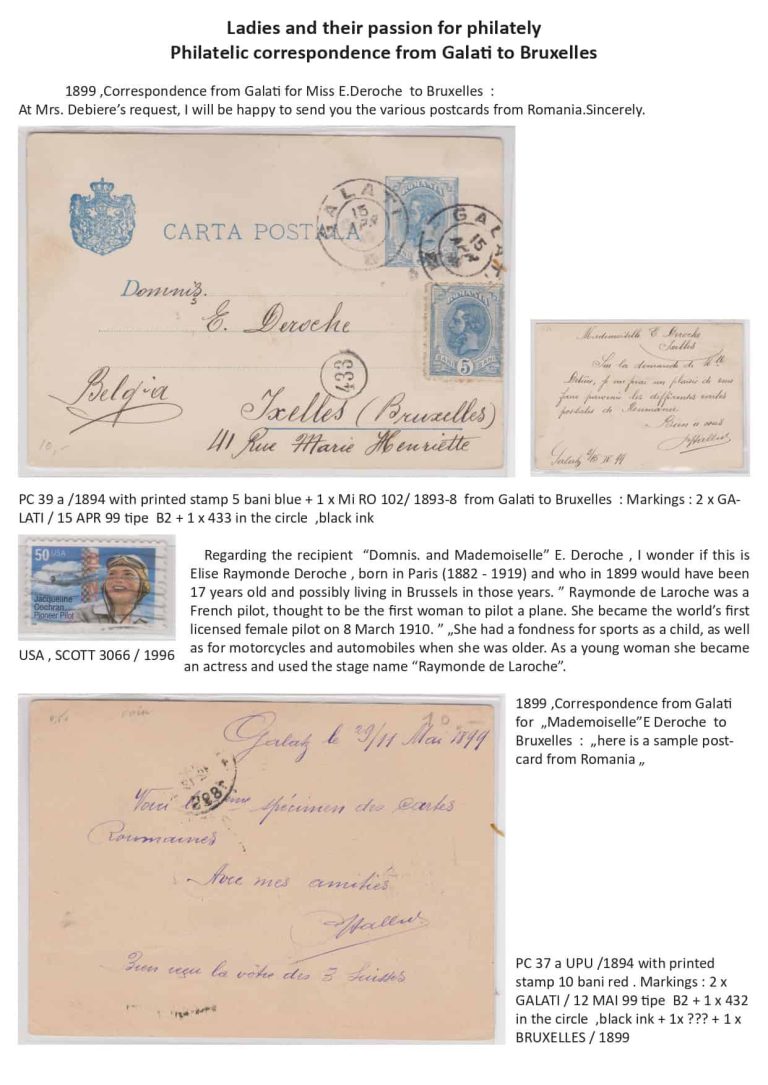 Ladies and their passion for philately
Philatelic correspondence from Galati to Bruxelles
1899 ,Correspondence from Galati for Miss E.Deroche to Bruxelles :
At Mrs. Debiere’s request, I will be happy to send you the various postcards from Romania.Sincerely.
ROMANIA
GALATI
15
APR
GALATI
15
APR
CARTA POSTALA
Domnis.
E. Deroche
ROMANIA
BANI 5 BANI
433
Belgia
Ixelles (Bruxelles)
41 Rue Marie Henriette
10,-
Mademoiselle E. Deroche
Ixelles
Sur la demande de
je me fais un plaisir de vous
faire parvenir les différentes cartes
postales de Roumanie
Bien à vous
PC 39 a /1894 with printed stamp 5 bani blue + 1 x Mi RO 102/ 1893-8 from Galati to Bruxelles : Markings : 2 x GA-
LATI / 15 APR 99 tipe B2 + 1 x 433 in the circle ,black ink
50 USA
Jacqueline
Cochran
Pioneer Pilot
USA , SCOTT 3066 / 1996
Regarding the recipient “Domnis. and Mademoiselle” E. Deroche , I wonder if this is
Elise Raymonde Deroche , born in Paris (1882 - 1919) and who in 1899 would have been
17 years old and possibly living in Brussels in those years. ” Raymonde de Laroche was a
French pilot, thought to be the first woman to pilot a plane. She became the world’s first
licensed female pilot on 8 March 1910. ” „She had a fondness for sports as a child, as well
as for motorcycles and automobiles when she was older. As a young woman she became
an actress and used the stage name “Raymonde de Laroche”.
Galatz le 29/11 Mai 1899
Voici le spécimen des cartes
Roumaines
Avec mes amitiés
Bien reçu la vôtre des 3 Suisses
1899 ,Correspondence from Galati
for „Mademoiselle”E Deroche to
Bruxelles : „here is a sample post-
card from Romania „
PC 37 a UPU /1894 with printed
stamp 10 bani red . Markings : 2 x
GALATI / 12 MAI 99 tipe B2 + 1 x 432
in the circle ,black ink + 1x ??? + 1 x
BRUXELLES / 1899